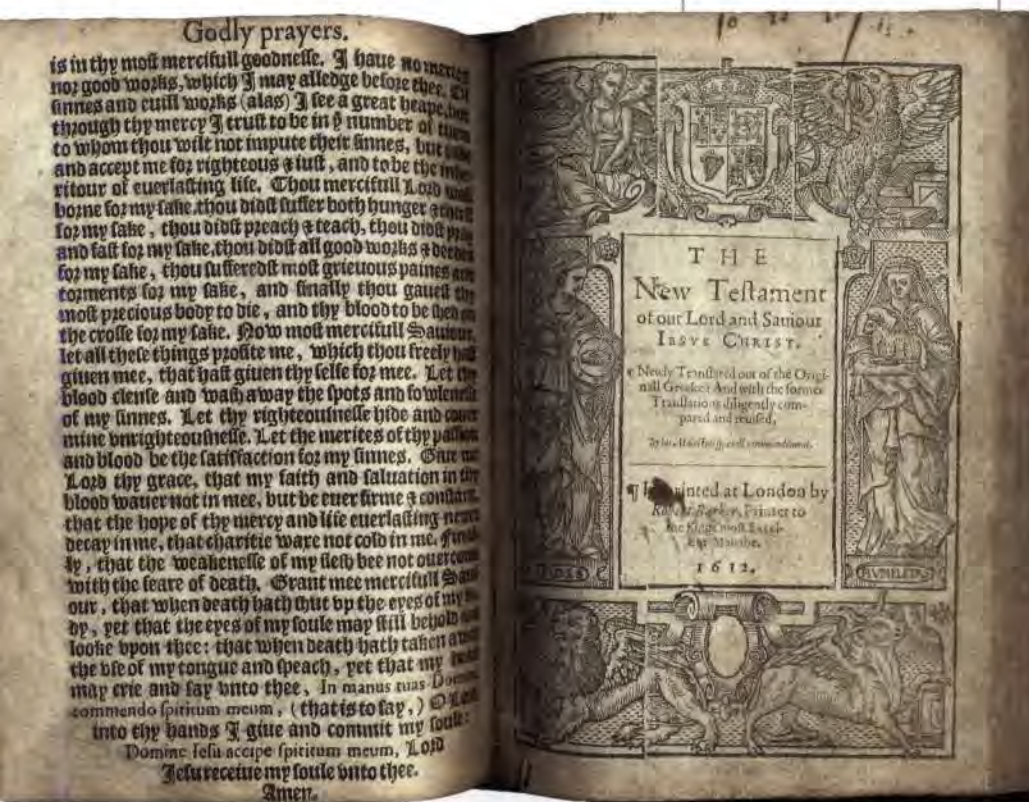 Godly prayers.
is in thy moſt mercifull goodneſſe. I haue no merits
nor good works, which I may alledge before thee. Of
ſinnes and euill works (alas) I ſee a great heape, but
through thy mercy I truſt to be in þͤ number of them
to whom thou wilt not impute their ſinnes, but
and accept me for righteous ⁊ iuſt, and to be the inhe
ritour of euerlaſting life. Thou mercifull Lord waſt
borne for my ſake, thou didſt ſuffer both hunger ⁊ thirſt
for my ſake, thou didſt preach ⁊ teach, thou didſt pray
and faſt for my ſake, thou didſt all good works ⁊ deedes
for my ſake, thou ſufferedſt moſt grieuous paines and
torments for my ſake, and finally thou gaueſt thy
moſt precious body to die, and thy blood to be ſhed on
the croſſe for my ſake. Now moſt mercifull Sauiour,
let all theſe things profite me, which thou freely haſt
giuen mee, that haſt giuen thy ſelfe for mee. Let thy
blood clenſe and waſh away the ſpots and fowleneſſe
of my ſinnes. Let thy righteouſneſſe hide and couer
mine vnrighteouſneſſe. Let the merites of thy paſſion
and blood be the ſatiſfaction for my ſinnes. Giue me
Lord thy grace, that my faith and ſaluation in thy
blood wauer not in mee, but be euer firme ⁊ conſtant,
that the hope of thy mercy and life euerlaſting neuer
decay in me, that charitie waxe not cold in me. Final
ly, that the weakeneſſe of my fleſh bee not ouercome
with the feare of death. Grant mee mercifull Saui
our, that when death hath ſhut vp the eyes of my bo
dy, yet that the eyes of my ſoule may ſtill behold and
looke vpon thee: that when death hath taken away
the vſe of my tongue and ſpeach, yet that my heart
may crie and ſay vnto thee, In manus tuas Domine
commendo ſpiritum meum, (that is to ſay,) O Lord
into thy hands I giue and commit my ſoule:
Domine Ieſu accipe ſpiritum meum, Lord
Ieſu receiue my ſoule vnto thee.
Amen.
THE
New Teſtament
of our Lord and Sauiour
IESVS CHRIST.
¶ Newly Tranſlated out of the Origi-
nall Greeke: And with the former
Tranſlations diligently com-
pared and reuiſed,
By his Maieſties ſpeciall commandement.
¶ Imprinted at London by
Robert Barker, Printer to
the Kings moſt Excel-
lent Maieſtie.
1612.
FIDES
HVMILITAS